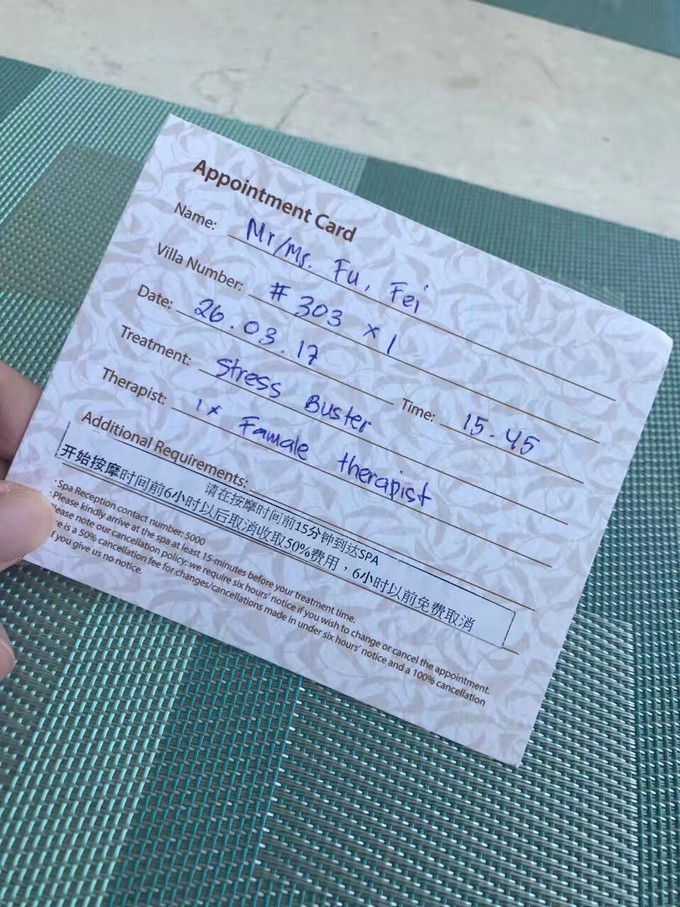 Appointment Card
Name: Mr/Ms. Fu, Fei
Villa Number: # 303 x 1
Date: 26.03.17 Time: 15.45
Treatment: Stress Buster
Therapist: 1x Famale therapist
Additional Requirements:
请在按摩时间前15分钟到达SPA
开始按摩时间前6小时以后取消收取50%费用，6小时以前免费取消
Spa Reception contact number: 5000
Please kindly arrive at the spa at least 15-minutes before your treatment time.
ease note our cancellation policy: we require six hours' notice if you wish to change or cancel the appointment.
re is a 50% cancellation fee for changes/cancellations made in under six hours' notice and a 100% cancellation
f you give us no notice.